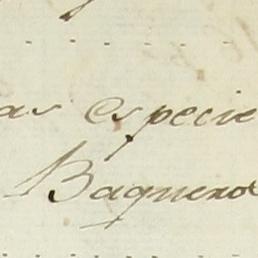 as especie
Baquero